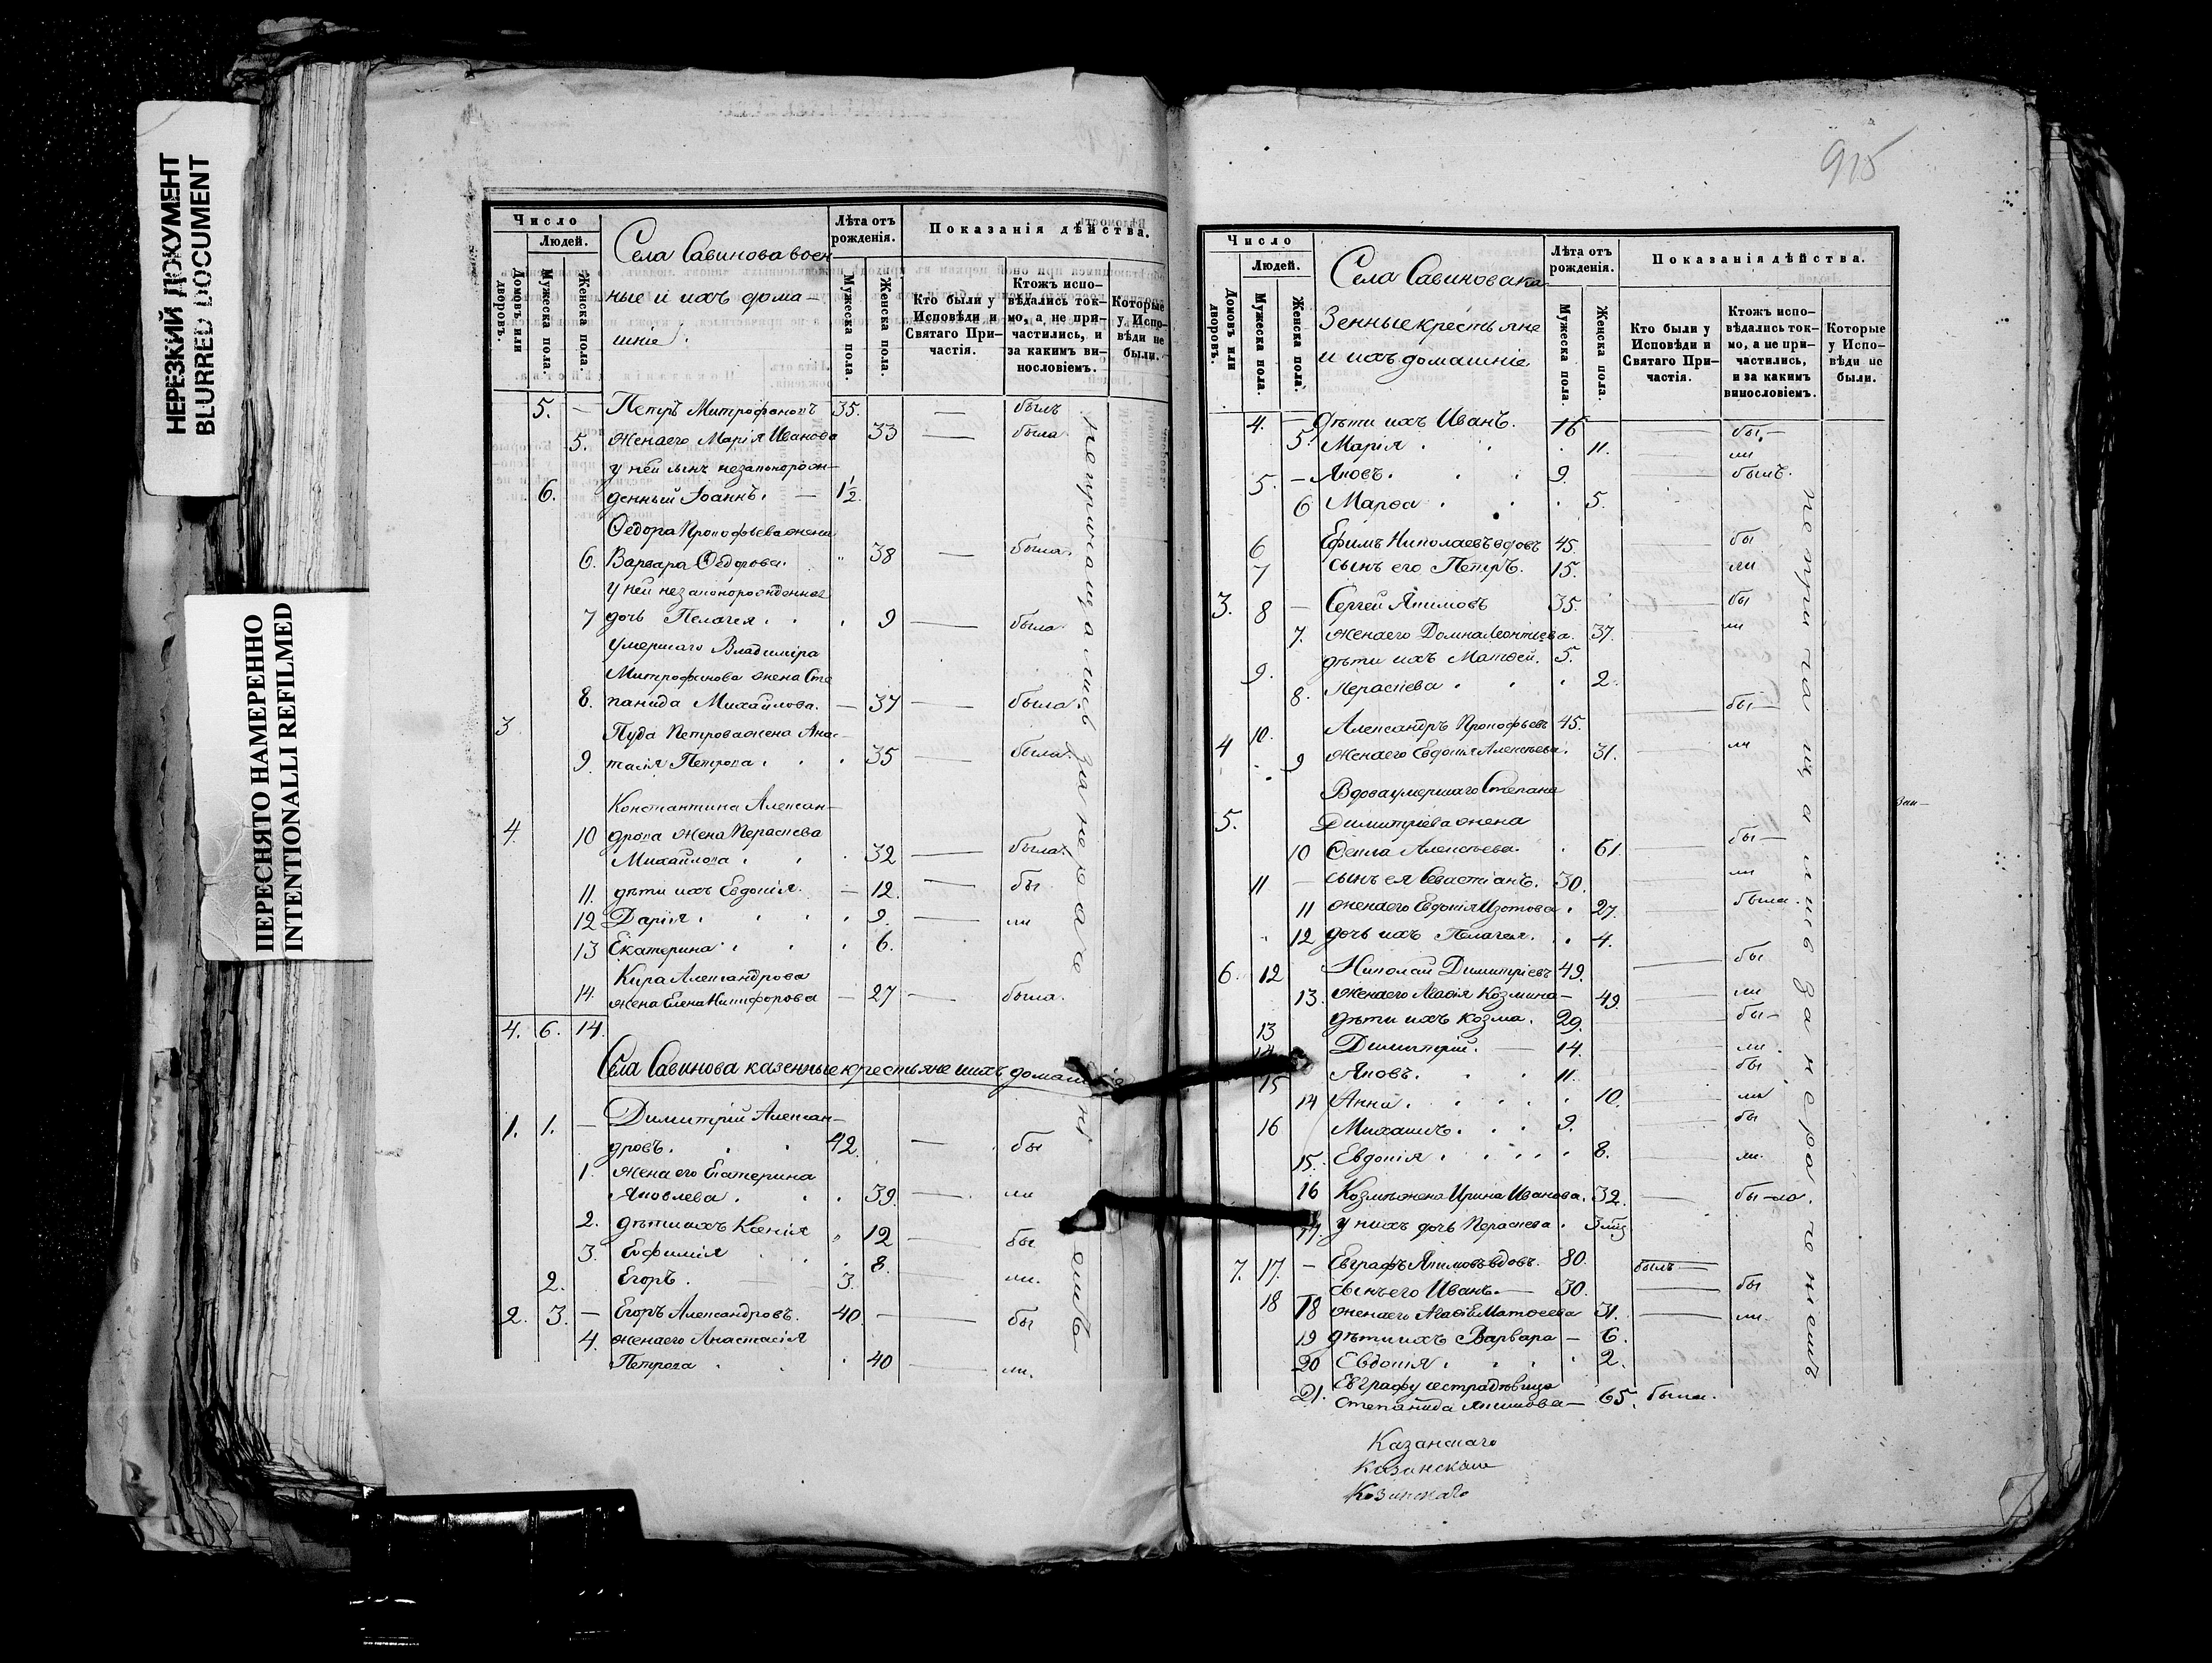 НЕРЕЗКИЙ ДОКУМЕНТ
BLURRED DOCUMENT
ПЕРЕСНЯТО НАМЕРЕННО
INTENTIONALLI REFILMED
Число
Людей.
Домовъ или дворовъ.
Мужеска пола.
Женска пола.
Села Савинова воен
ные и ихъ дома-
шніе.
Лѣта отъ рожденія.
Мужеска пола.
Женска пола.
Показанія дѣйства.
Кто были у Исповѣди и Святаго Причастія.
Ктожъ исповѣдались токмо, а не причастились, и за какимъ винословіемъ.
Которые у Исповѣди не были.
5. — Петръ Митрофановъ 35. — былъ
5. жена его Марія Иванова 33 — была
у ней сынъ незаконорож-
6. денный Іоаннъ. — 1½
Ѳедора Прокофьева жена
6. Варвара Ѳедорова. 38 — была.
у ней незаконорожденная
7 дочь Пелагея . . . 9 — была
умершаго Владиміра
Митрофанова жена Сте
8. панида Михайлова. — 37 — была
3 Пуда Петрова жена Ана-
9. тасія Петрова . . . 35 — была.
Константина Алексан-
4. 10 дрова жена Параскева
Михайлова . . . 32 — была.
11. дѣти ихъ Евдокія. — 12. — бы
12 Дарія . . . . 9. — ли
13 Екатерина . . . 6.
Кира Александрова
14. жена Елена Никифорова — 27 — была.
4. 6. 14.
не пріищались за нераченіемъ
Села Савинова казенные крестьяне и ихъ домашніе
1. 1. — Димитрій Алексан-
дровъ. . . 42. — бы
1. жена его Екатерина
Яковлева . . . 39. — ли
2. дѣти ихъ Ксенія 12 — бы
3. Евфимія . . . 8.
2. Егоръ. — 3. ли.
2. 3. — Егоръ Александровъ. 40 — — бы
4. жена его Анастасія
Петрова . . . 40 — ли.
915
Число
Людей.
Домовъ или дворовъ.
Мужеска пола.
Женска пола.
Села Савинова ка
зенные крестьяне
и ихъ домашніе
Лѣта отъ рожденія.
Мужеска пола.
Женска пола.
Показанія дѣйства.
Кто были у Исповѣди и Святаго Причастія.
Ктожъ исповѣдались токмо, а не причастились, и за какимъ винословіемъ.
Которые у Исповѣди не были.
4. — дѣти ихъ Иванъ. 16 — бы-
5. Марія . . . 11. — ли
5. — Яковъ. . . . 9. — былъ.
6 Марѳа . . . 5.
6 Ефимъ Николаевъ вдовъ 45. — бы
7 сынъ его Петръ. 15. — ли
3. 8 — Сергей Якимовъ 35. — бы
7. жена его Домна Леонтьева. 37. — ли
9. дѣти ихъ Матѳей. 5.
8. Параскева . . . 2.
4 10. Александръ Прокофьевъ 45. — бы-
9 жена его Евдокія Алексѣева. 31. — ли
Вдова умершаго Степана
5. Димитріева жена
10 Ѳекла Алексѣева. . 61. — бы-
11 — сынъ ея Севастіанъ. 30. — ли
11 жена его Евдокія Изотова . 27. — была.
12 дочь ихъ Пелагея. . 4.
6. 12 Николай Димитріевъ 49. — бы
13. жена его Агаѳія Козмина — 49. — ли
13 дѣти ихъ Козма. 29. — бы-
14 Димитрій. — 14. — ли.
15 Яковъ. . . 11. — бы
14 Анна . . . . . 10. — ли
16 Михаилъ. . . 9. — бы
15. Евдокія . . . . . 8. — ли.
16 Козмы жена Ирина Иванова. 32. — бы-ла.
17. у нихъ дочь Параскева . 3 мѣ
7. 17. — Евграфъ Якимовъ вдовъ. 80. былъ
18 сынъ его Иванъ. — 30. — бы
18 жена его Агаѳія Матѳеева 31. — ли.
19 дѣти ихъ Варвара — 6.
20 Евдокія . . . . 2.
Евграфу сестра дѣвица
21. Степанида Якимова — 65. была.
не пріищались за нераченіемъ
Казанскаго
Казанскаго
Казанскаго